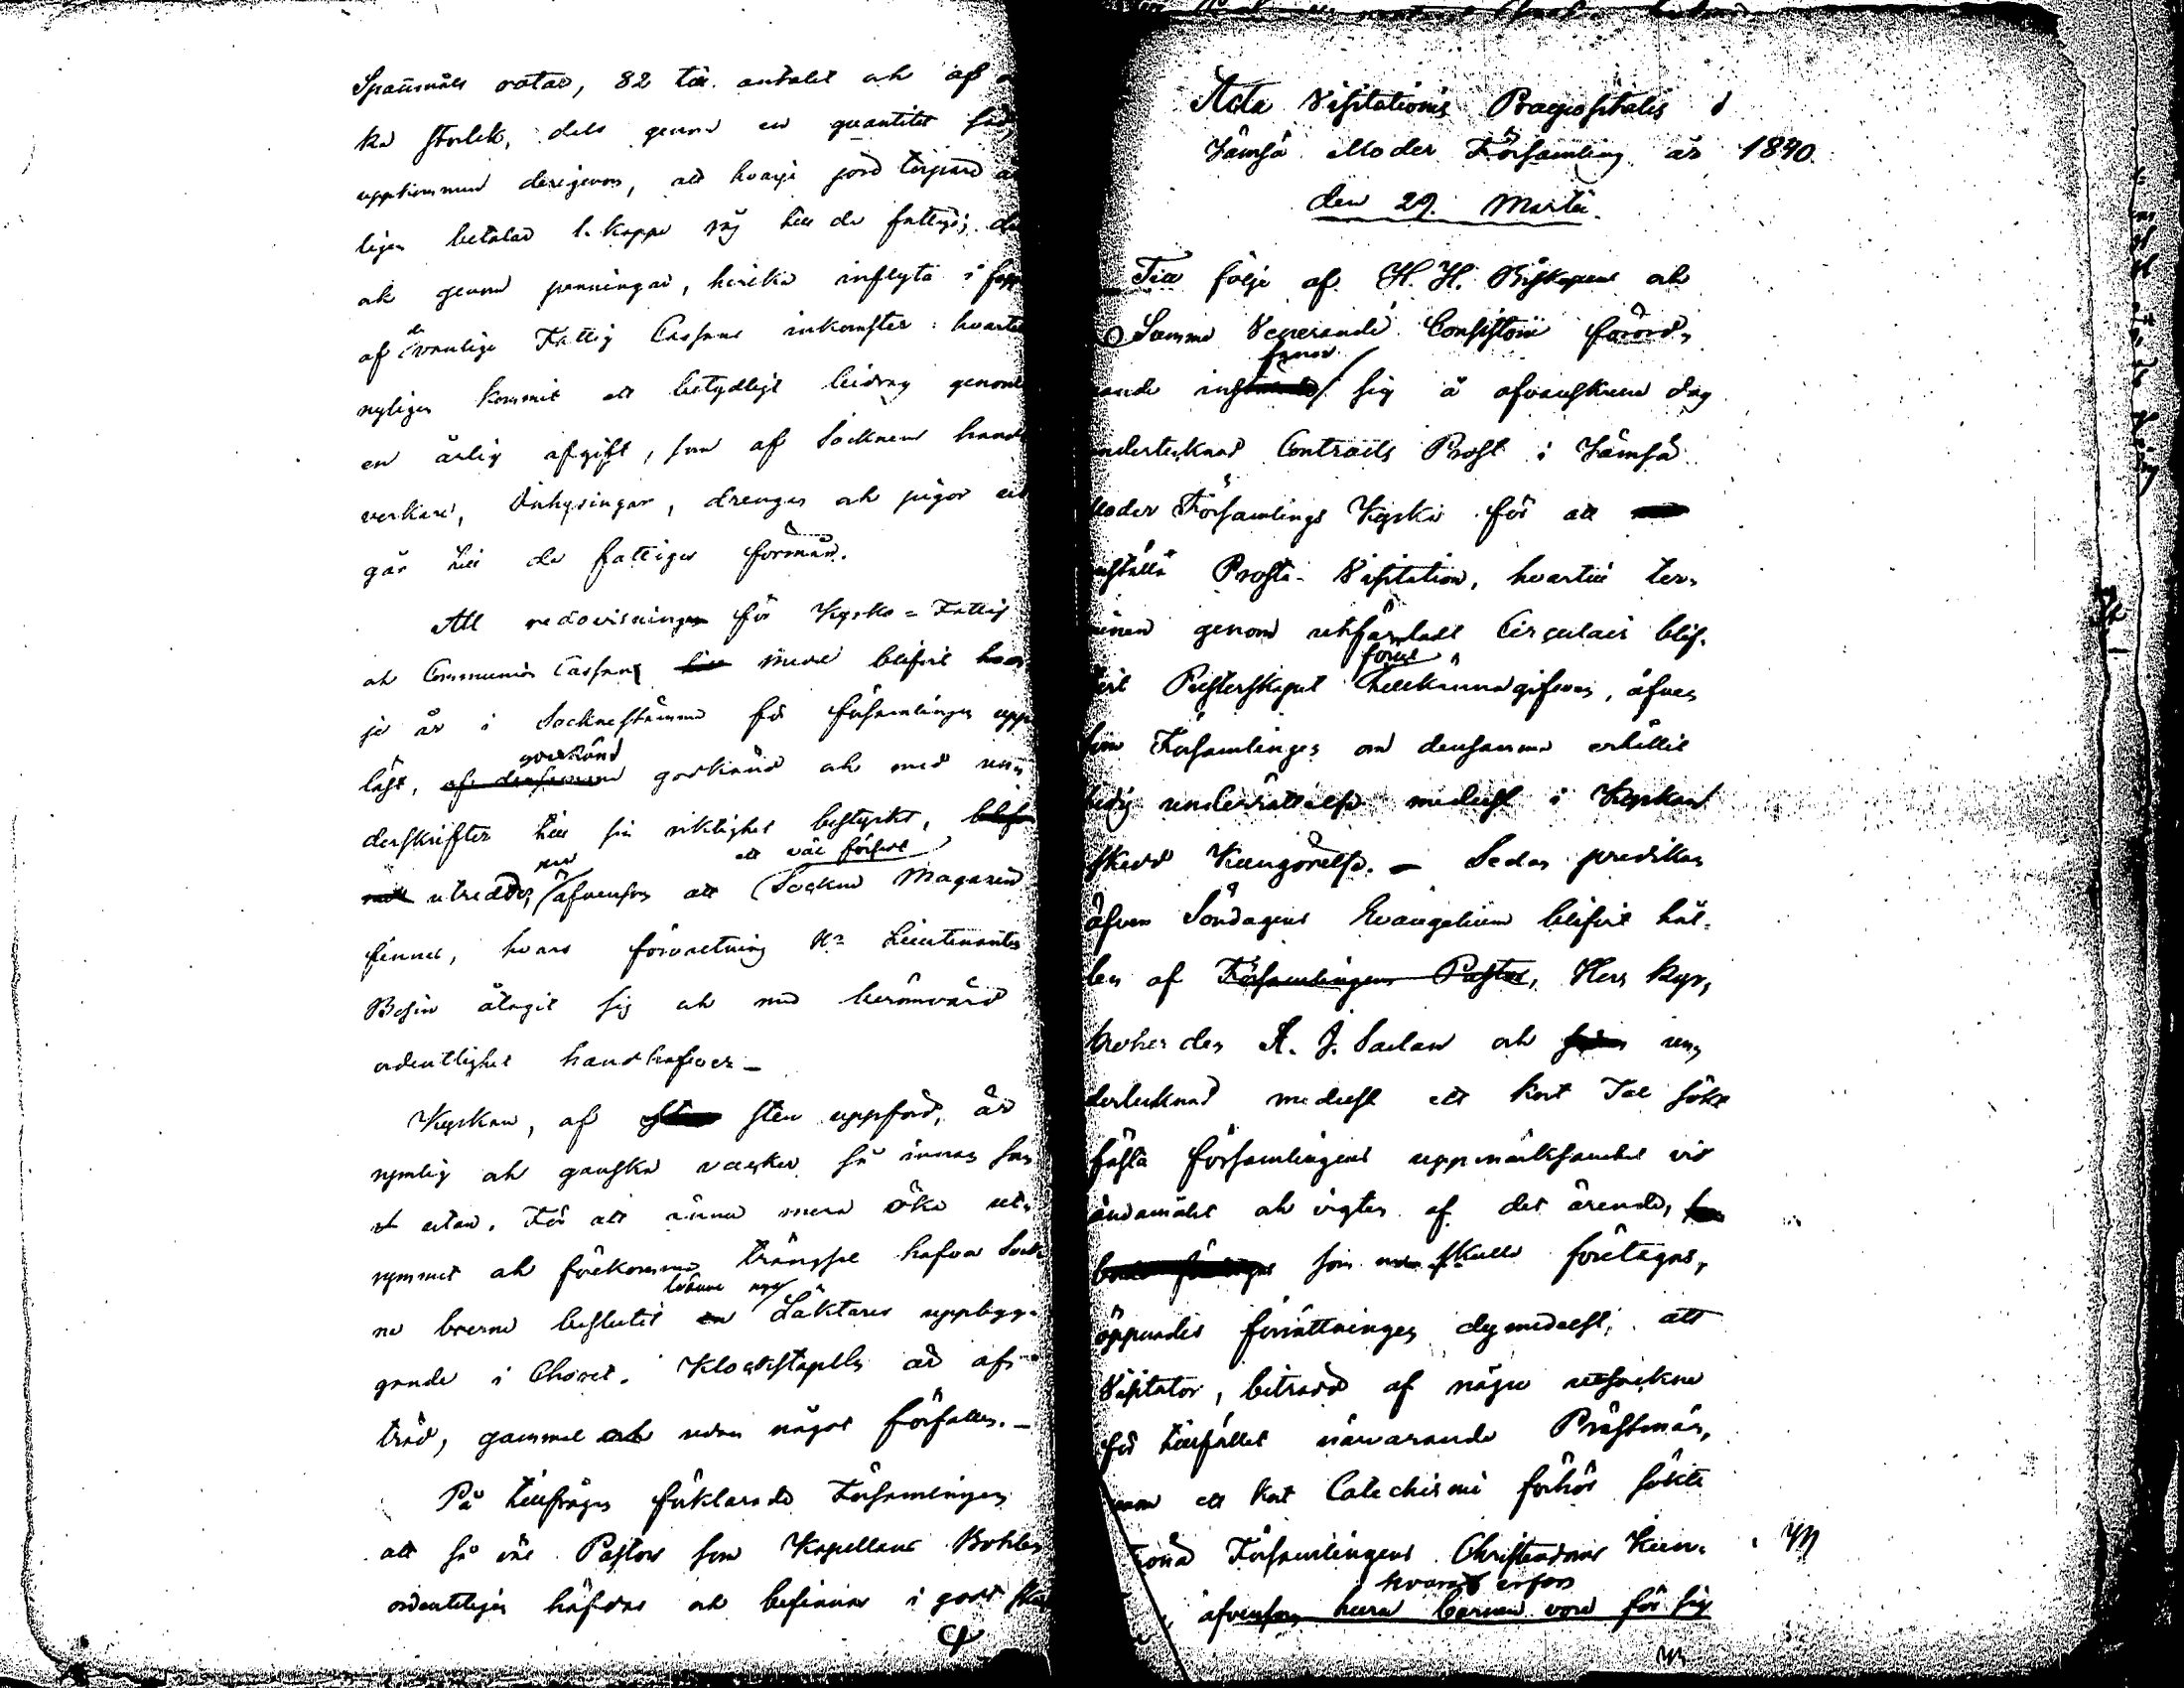 Spannmåls rotar, 82 till antalet och af o
ka storlek, dels genom en quantitet säd,
uppkommen derigenom, att hvarje jord torpare år
ligen betalar 1. kappe råg till de fattige; de
och genom penningar, hvilka inflyta i
af de vanlige Fattig Cassans inkomster: hvartill
nyligen kommit ett betydligt bidrag genom
en årlig afgift, som af Socknens hand
verkare, Inhysingar, drengar och pigor ut
går till de fattiges förmån.
Att redovisningen för Kyrko= Fattig
och Communion Cassans blifvit hvar
je år i Sockne stämma för församlingen upp
läst, godkänd och med un
derskrifter till sin riktighet bestyrkt,
utredde, äfvensom att ett väl försedt Sockne Magasin
finnes, hvars förvaltning Hr Lieutenanten
åtagit sig och med berömvärd
ordentlighet handhafver. –
Kyrkan, af sten uppförd, är
rymlig och ganska vacker så innan som
utan. För att ännu mera öka ut-
rymmet och förekomma trängsel hafva Sock
ne boerne beslutit tvänne nya Läktares uppbyg-
gande i Choret. Klockstapeln är af
träd, gammal och utan något förfallen. –
På tillfrågan förklarade Församlingen
att så väl Pastors som Kapellans Bohlen
ordentligen häfdas och befinnas i godt
Acta Visitationis Praepositalis i
Jämsä Moder Församling år 1840.
den 29. Martii.
Till följe af H. H. Biskopens och
Samma Venerandi Consistorii förord-
nande infann sig å ofvanskrefne dag
undertecknad Contracts Prost i Jämsä
Moder Församlings Kyrka för att
anställa Prosta-Visitation, hvartill ter-
minen genom utfärdadt Circulair blif-
vit Presterskapet förut tillkännagifven, äfven
som Församlingen om densamma erhållit
tidig underrättelse medelst i Kyrkan
skedd Kungörelse. – Sedan predikan
öfver Söndagens Evangelium blifvit hål-
len af Församlingens Pastor, Herr Kyr-
koherden A. J. och un
dertecknad medelst ett kort Tal sökt
fästa församlingens uppmärksamhet vid
ändamålet och vigten af det ärende,
som nu skulle företagas,
öppnades förrättningen dymedelst, att
Visitator, biträdd af några utsockne
för tillfället närvarande Prästmän,
genom ett kort Catechismi förhör sökte
Församlingens Christendoms Kun-
hvarvid erfors
äfvensom huru barnen voro för sig